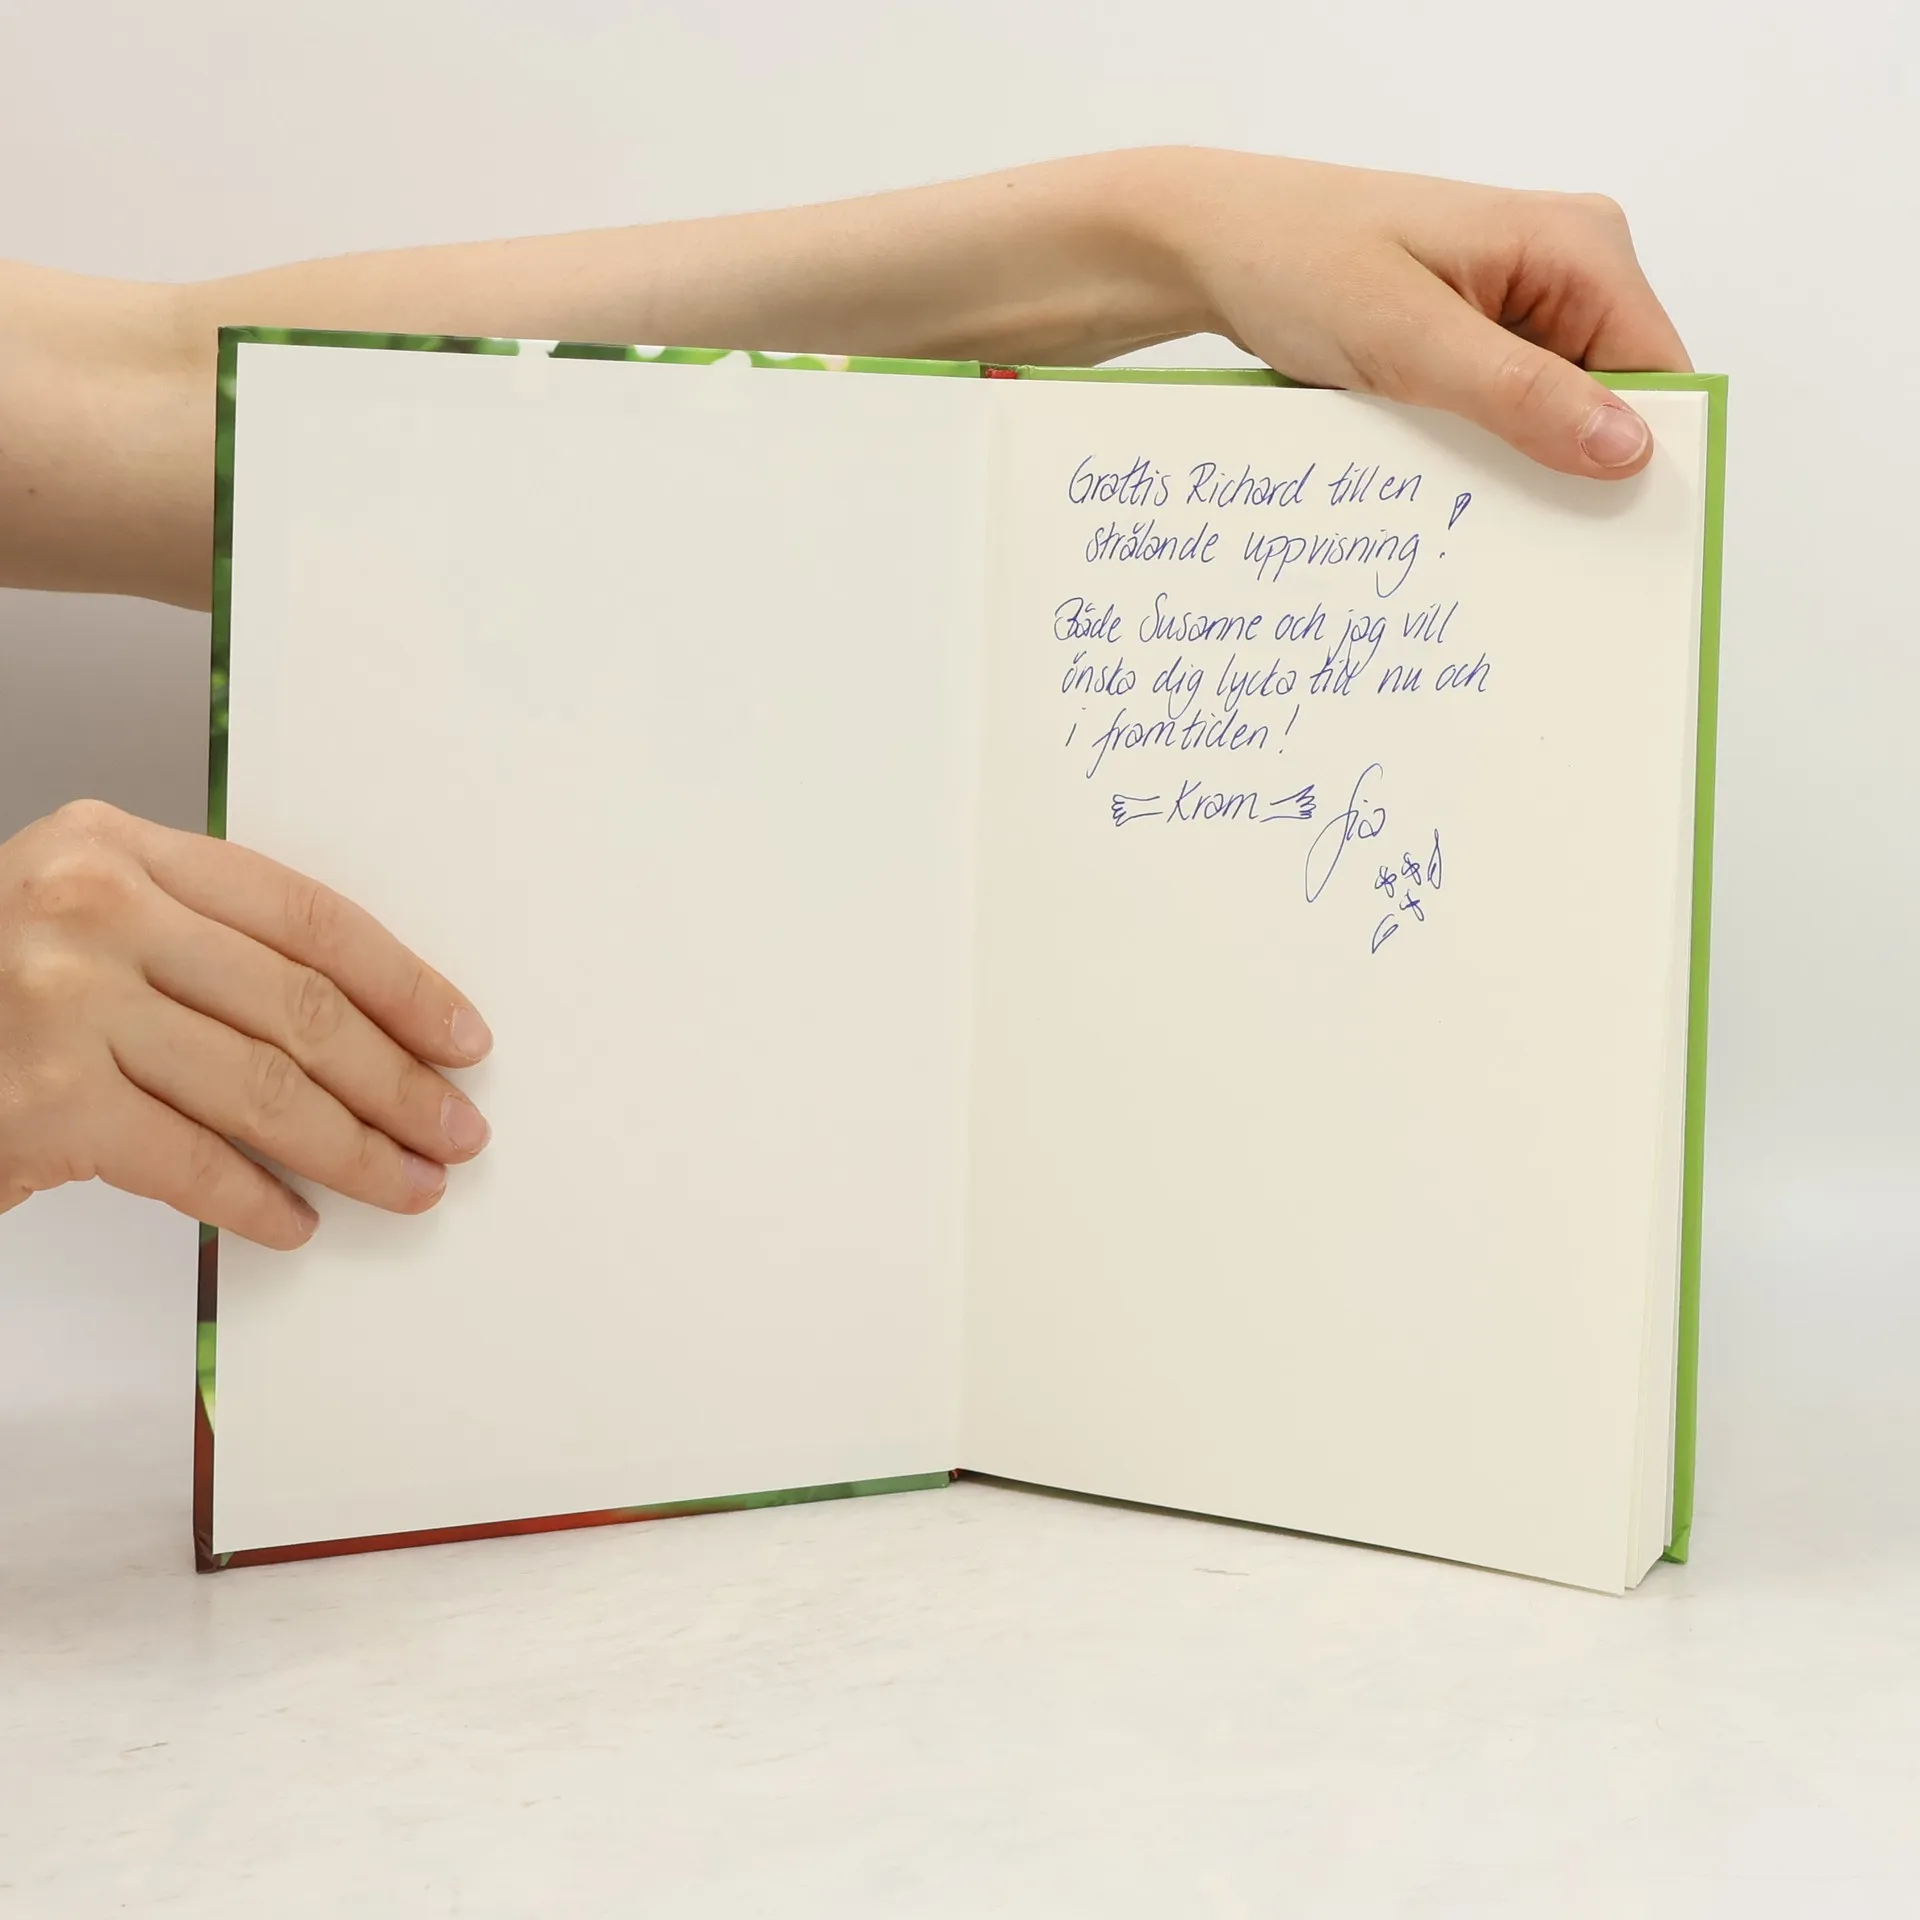 Grattis Richard till en
strålande uppvisning!
Både Susanne och jag vill
önska dig lycka till nu och
i framtiden!
Kram